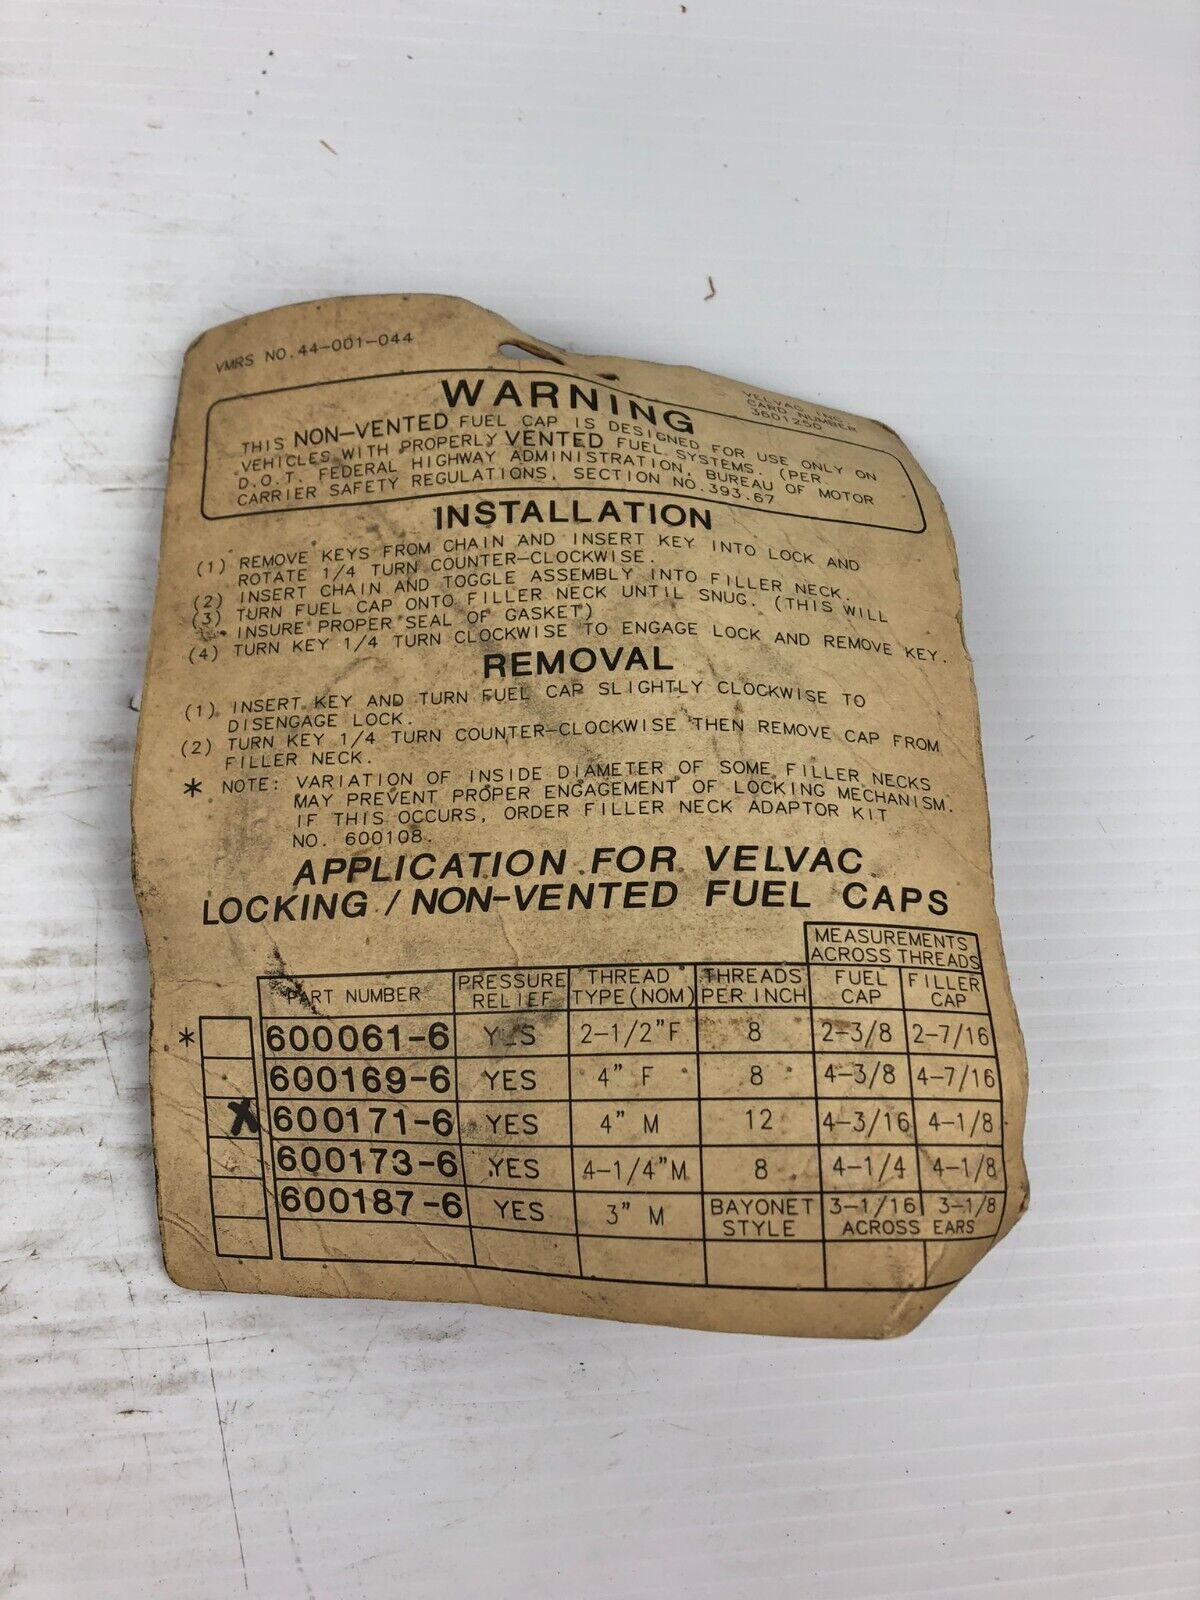 VMRS NO.44-001-044
VELVAC, INC.
CARD NUMBER
3601250
WARNING
THIS NON-VENTED FUEL CAP IS DESIGNED FOR USE ONLY ON
VEHICLES WITH PROPERLY VENTED FUEL SYSTEMS. (PER
D.O.T. FEDERAL HIGHWAY ADMINISTRATION, BUREAU OF MOTOR
CARRIER SAFETY REGULATIONS, SECTION NO.393.67
INSTALLATION
(1) REMOVE KEYS FROM CHAIN AND INSERT KEY INTO LOCK AND
ROTATE 1/4 TURN COUNTER-CLOCKWISE.
(2) INSERT CHAIN AND TOGGLE ASSEMBLY INTO FILLER NECK.
(3) TURN FUEL CAP ONTO FILLER NECK UNTIL SNUG. (THIS WILL
INSURE PROPER SEAL OF GASKET)
(4) TURN KEY 1/4 TURN CLOCKWISE TO ENGAGE LOCK AND REMOVE KEY.
REMOVAL
(1) INSERT KEY AND TURN FUEL CAP SLIGHTLY CLOCKWISE TO
DISENGAGE LOCK.
(2) TURN KEY 1/4 TURN COUNTER-CLOCKWISE THEN REMOVE CAP FROM
FILLER NECK.
* NOTE: VARIATION OF INSIDE DIAMETER OF SOME FILLER NECKS
MAY PREVENT PROPER ENGAGEMENT OF LOCKING MECHANISM.
IF THIS OCCURS, ORDER FILLER NECK ADAPTOR KIT
NO. 600108.
APPLICATION FOR VELVAC
LOCKING / NON-VENTED FUEL CAPS
MEASUREMENTS
ACROSS THREADS
PART NUMBER PRESSURE RELIEF THREAD TYPE(NOM) THREADS PER INCH FUEL CAP FILLER CAP
* 600061-6 YES 2-1/2"F 8 2-3/8 2-7/16
600169-6 YES 4" F 8 4-3/8 4-7/16
X 600171-6 YES 4" M 12 4-3/16 4-1/8
600173-6 YES 4-1/4"M 8 4-1/4 4-1/8
600187-6 YES 3" M BAYONET STYLE 3-1/16 3-1/8
ACROSS EARS